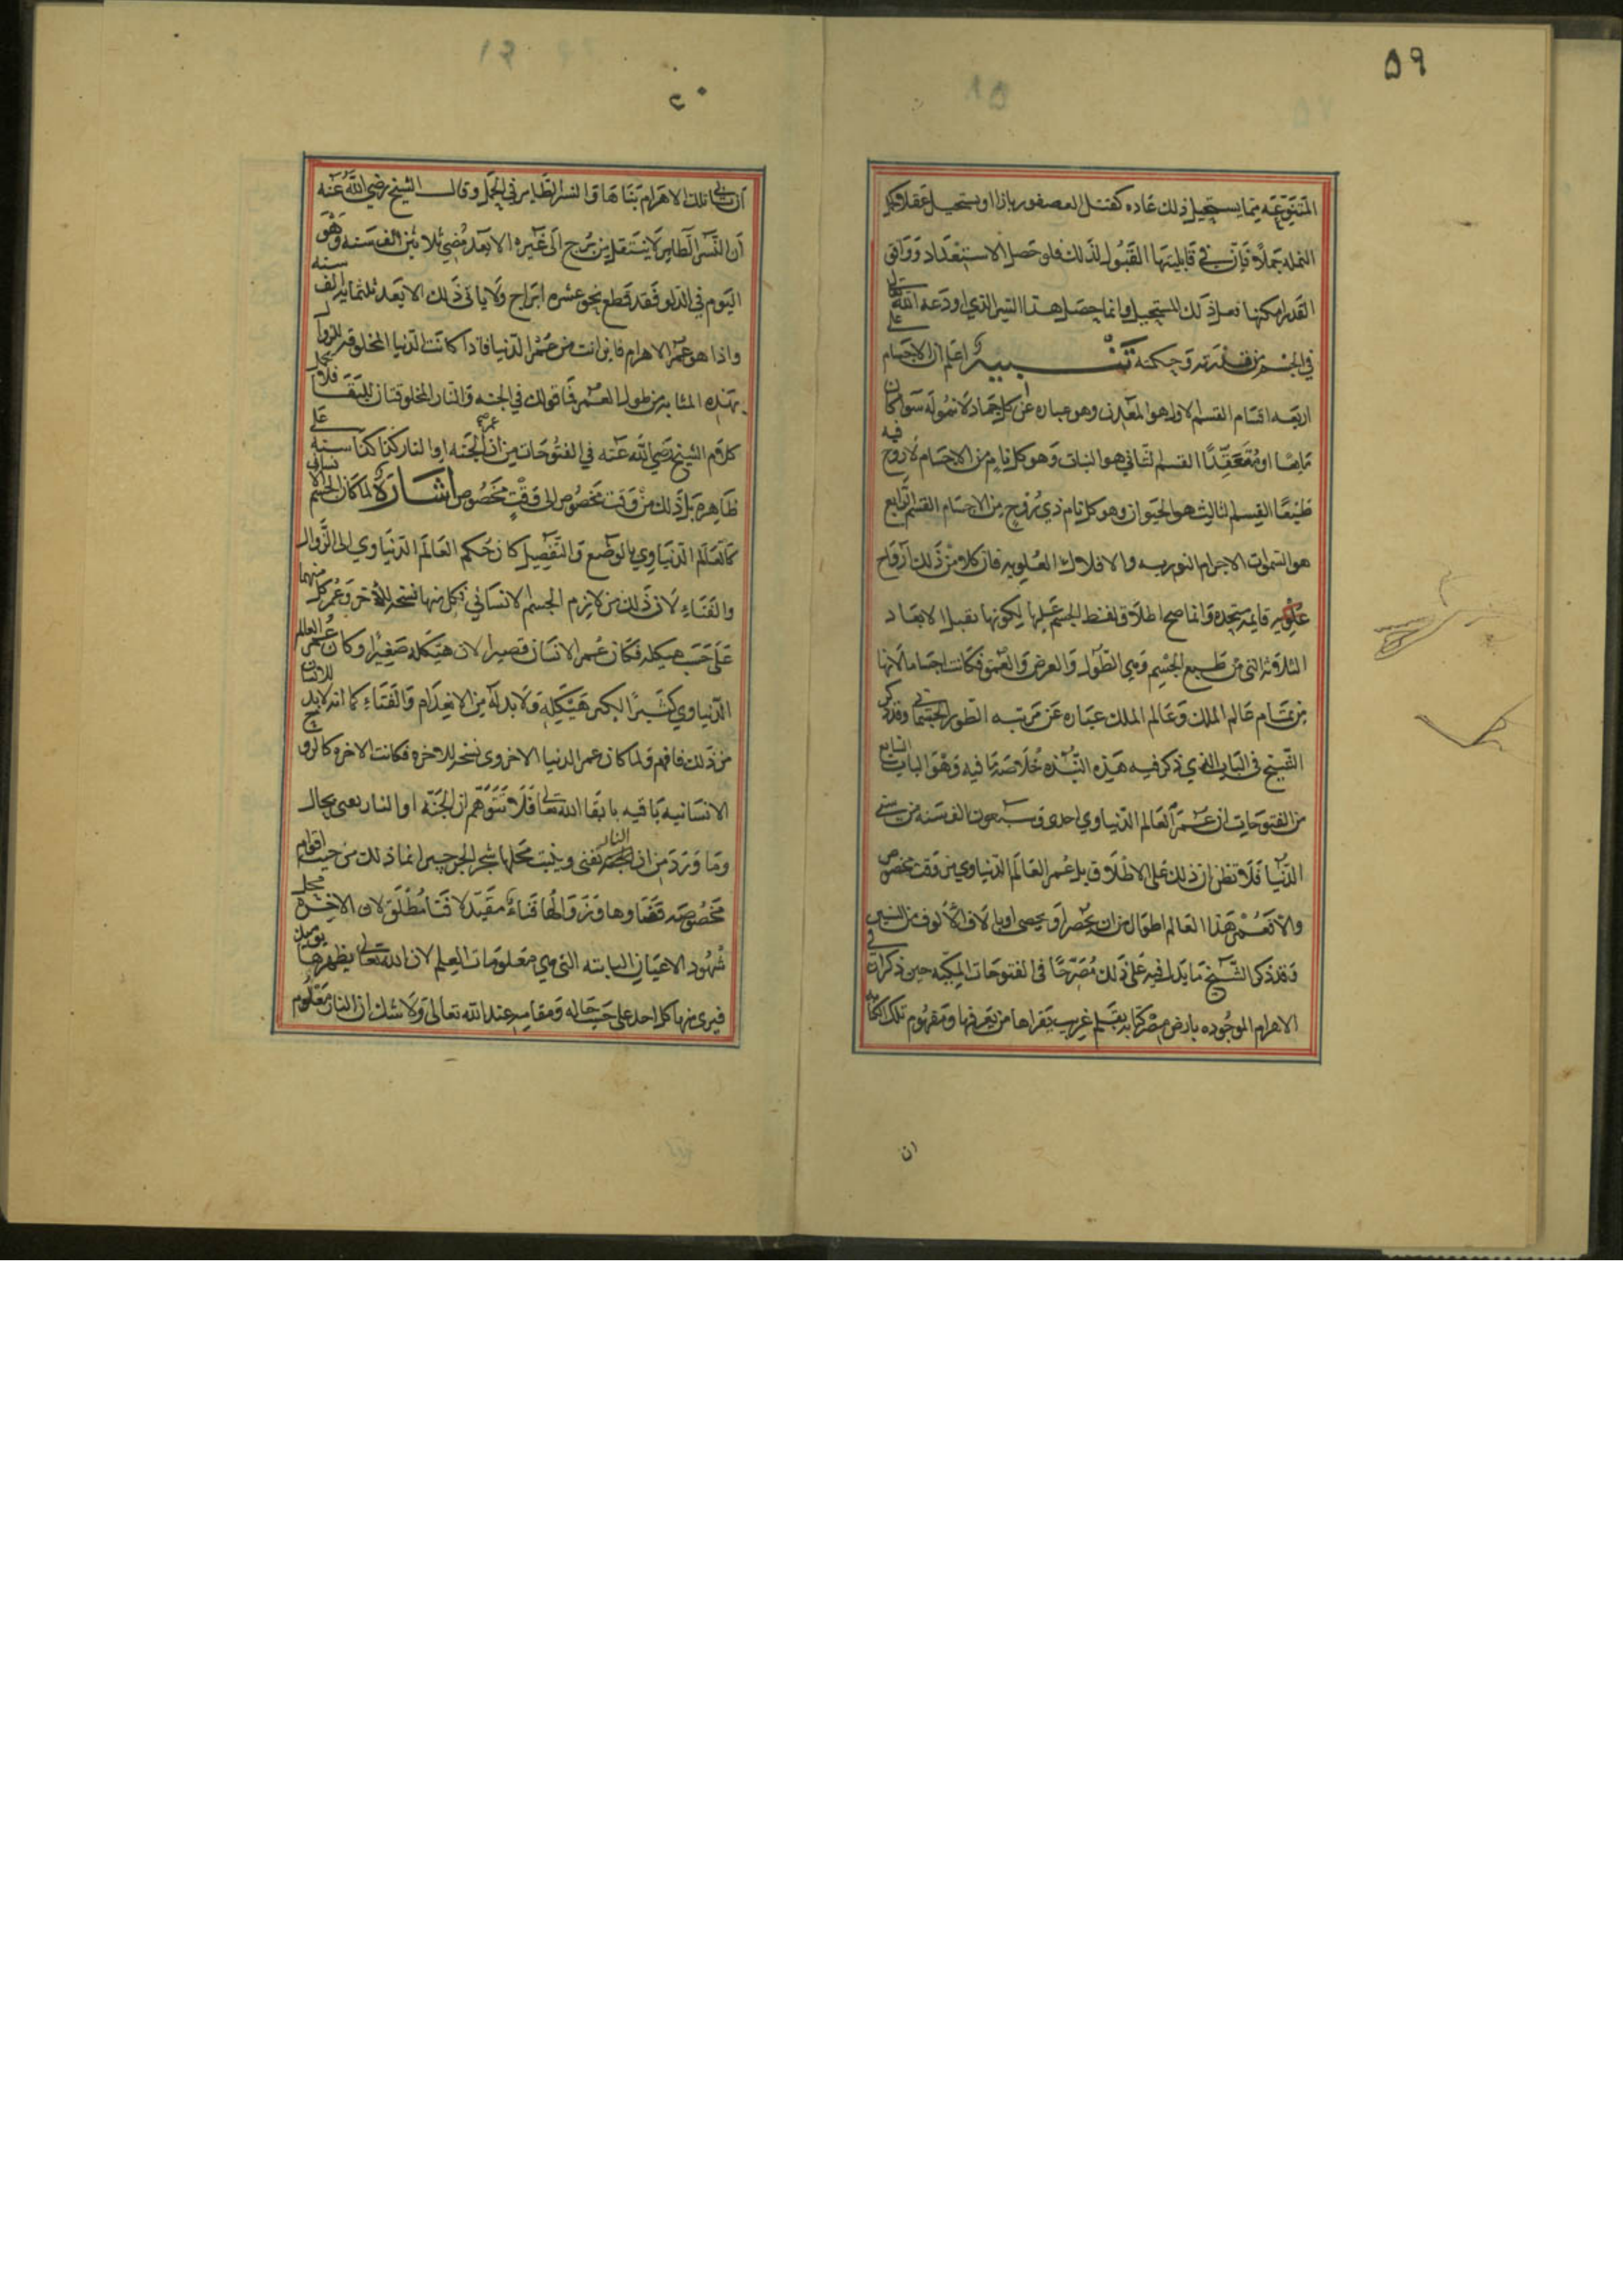 ٥٩
المتنوعة مما يستحيل ذلك عاده كقتل العصفور بازا او يستحيل عقلا
النمله جملا فان في قابليتها القبول لذلك فلو حصل الاستعداد ووافق
القدر امكنها فعل ذلك المستحيل وانما حصل هذا السر الذي اودعه الله تعالى
في الجسم من قدرته وحكمته تنبيه اعلم ان الاجسام على
اربعه اقسام القسم الاول هو المعدن وهو عباره عن كل جماد لا نمو له سوا كان
مايعا او منعقدا القسم الثاني هو النبات وهو كل نام من الاجسام لا روح فيه
طبيعا القسم الثالث هو الحيوان وهو كل نام ذي روح من الاجسام القسم الرابع
هو السموات الاجرام النوريه والافلاك العلويه فان كلا من ذلك ارواح
علويه قايمه بجده وانما صح اطلاق لفظ الجسم عليها لكونها تقبل الابعاد
الثلاثه التي من طبع الجسم وهي الطول والعرض والعمق فكانت اجساما لانها
من تمام عالم الملك وعالم الملك عباره عن مرتبه الطور الجسماني وقد ذكر
الشيخ في الباب الذي ذكر فيه هذه النبذه خلاصة ما فيه وهو الباب السابع
من الفتوحات ان عمر العالم الدنياوي احدى وسبعون الف سنه من سني
الدنيا فلا تظن ان ذلك على الاطلاق بل عمر العالم الدنياوي من وقت مخصوص
والا فعمر هذا العالم اطول من ان يحصر او يحصى اوبا لاف الالوف من السنين
وقد ذكر الشيخ ما يدل فيه على ذلك مصرحا في الفتوحات المكيه حين ذكر ان في
الاهرام الموجوده بارض مصر كتابه بقلم غريب يقراها من يعرفها ومفهوم تلك الكتابه
ان
ان باني تلك الاهرام بناها والنسر الطاير في الحمل وقال الشيخ رضي الله عنه
ان النسر الطاير لا ينتقل من برج الى غيره الا بعد مضي ثلاثين الف سنه وهو
اليوم في الدلو فقد قطع نحو عشره ابراج ولا ياتي ذلك الا بعد ثلثمايه الف سنه
واذا هو عمر الاهرام فاين انت من عمر الدنيا فاذا كانت الدنيا المخلوقه للزوال
بهذه المثابه من طول العمر فما قولك في الجنه والنار المخلوقتان للبقا فلا
كلام الشيخ رضي الله عنه في الفتوحات من ان عمر الجنه او النار كذا كذا سنه على
ظاهره بل ذلك من وقت مخصوص الى وقت مخصوص اشارة لما كان الجسم الانساني
كالعالم الدنياوي بالوضع والتفصيل كان حكم العالم الدنياوي الى الزوال
والفناء لان ذلك من لازم الجسم الانساني فكل منها نسخه للاخر وعمر كل منهما
على حسب هيكله فكان عمر الانسان قصيرا لان هيكله صغيرا وكان عمر العالم
الدنياوي كثيرا لكبر هيكله ولا بد له من الانعدام والفناء كما انه لا بد للانسان
من ذلك فافهم ولما كان عمر الدنيا الاخروي نسخه للاخره فكانت الاخره كالروح
الانسانيه باقيه بابقا الله تعالى فلا تتوهم ان الجنة او النار يعني بحال
وما ورد من ان النار تفنى وينبت محلها شجر الجرجير انما ذلك من حيث اقوام
مخصوصه قضاوها وزوالها فناء مقيد لا فنا مطلق لان الاخره محل
شهود الاعيان الثابته التي هي معلومات العلم لان الله تعالى يظهرها يوميذ
فيرى منها كل احد على حسب حاله ومقامه عند الله تعالى ولا شك ان النار معلوم